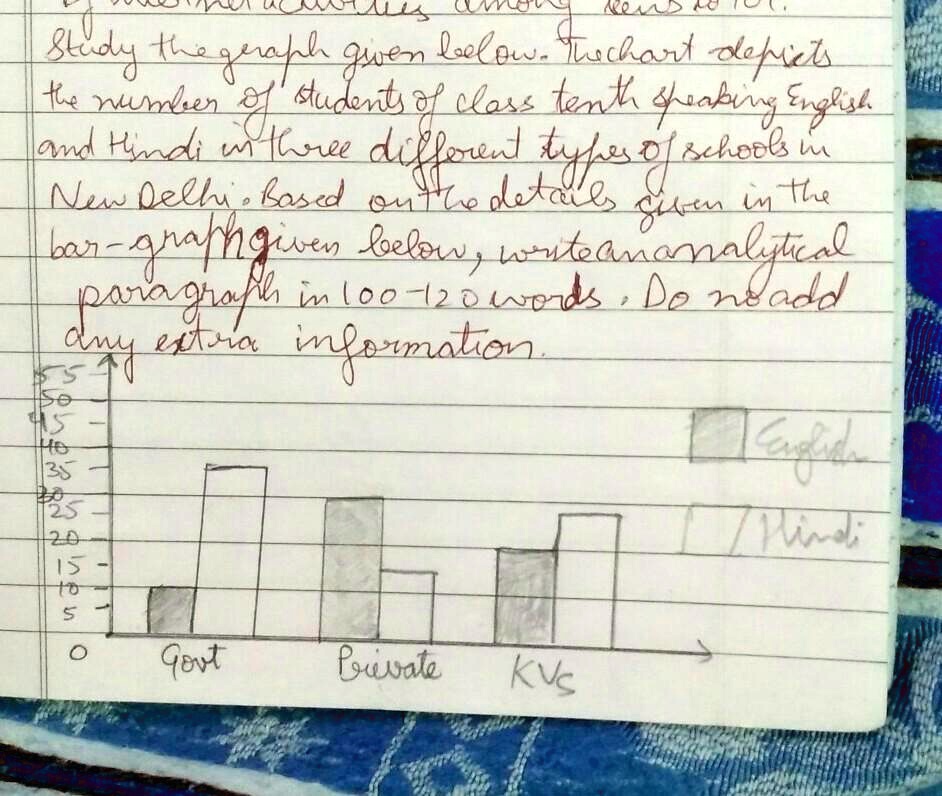 among teens
Study the graph given below. The chart depicts
the number of students of class tenth speaking English
and Hindi in three different types of schools in
New Delhi. Based on the details given in the
bar-graph given below, write an analytical
paragraph in 100-120 words. Do no add
any extra information.
55
50
45
40
35
30
25
20
15
10
5
0
English
Hindi
Govt Private KVs